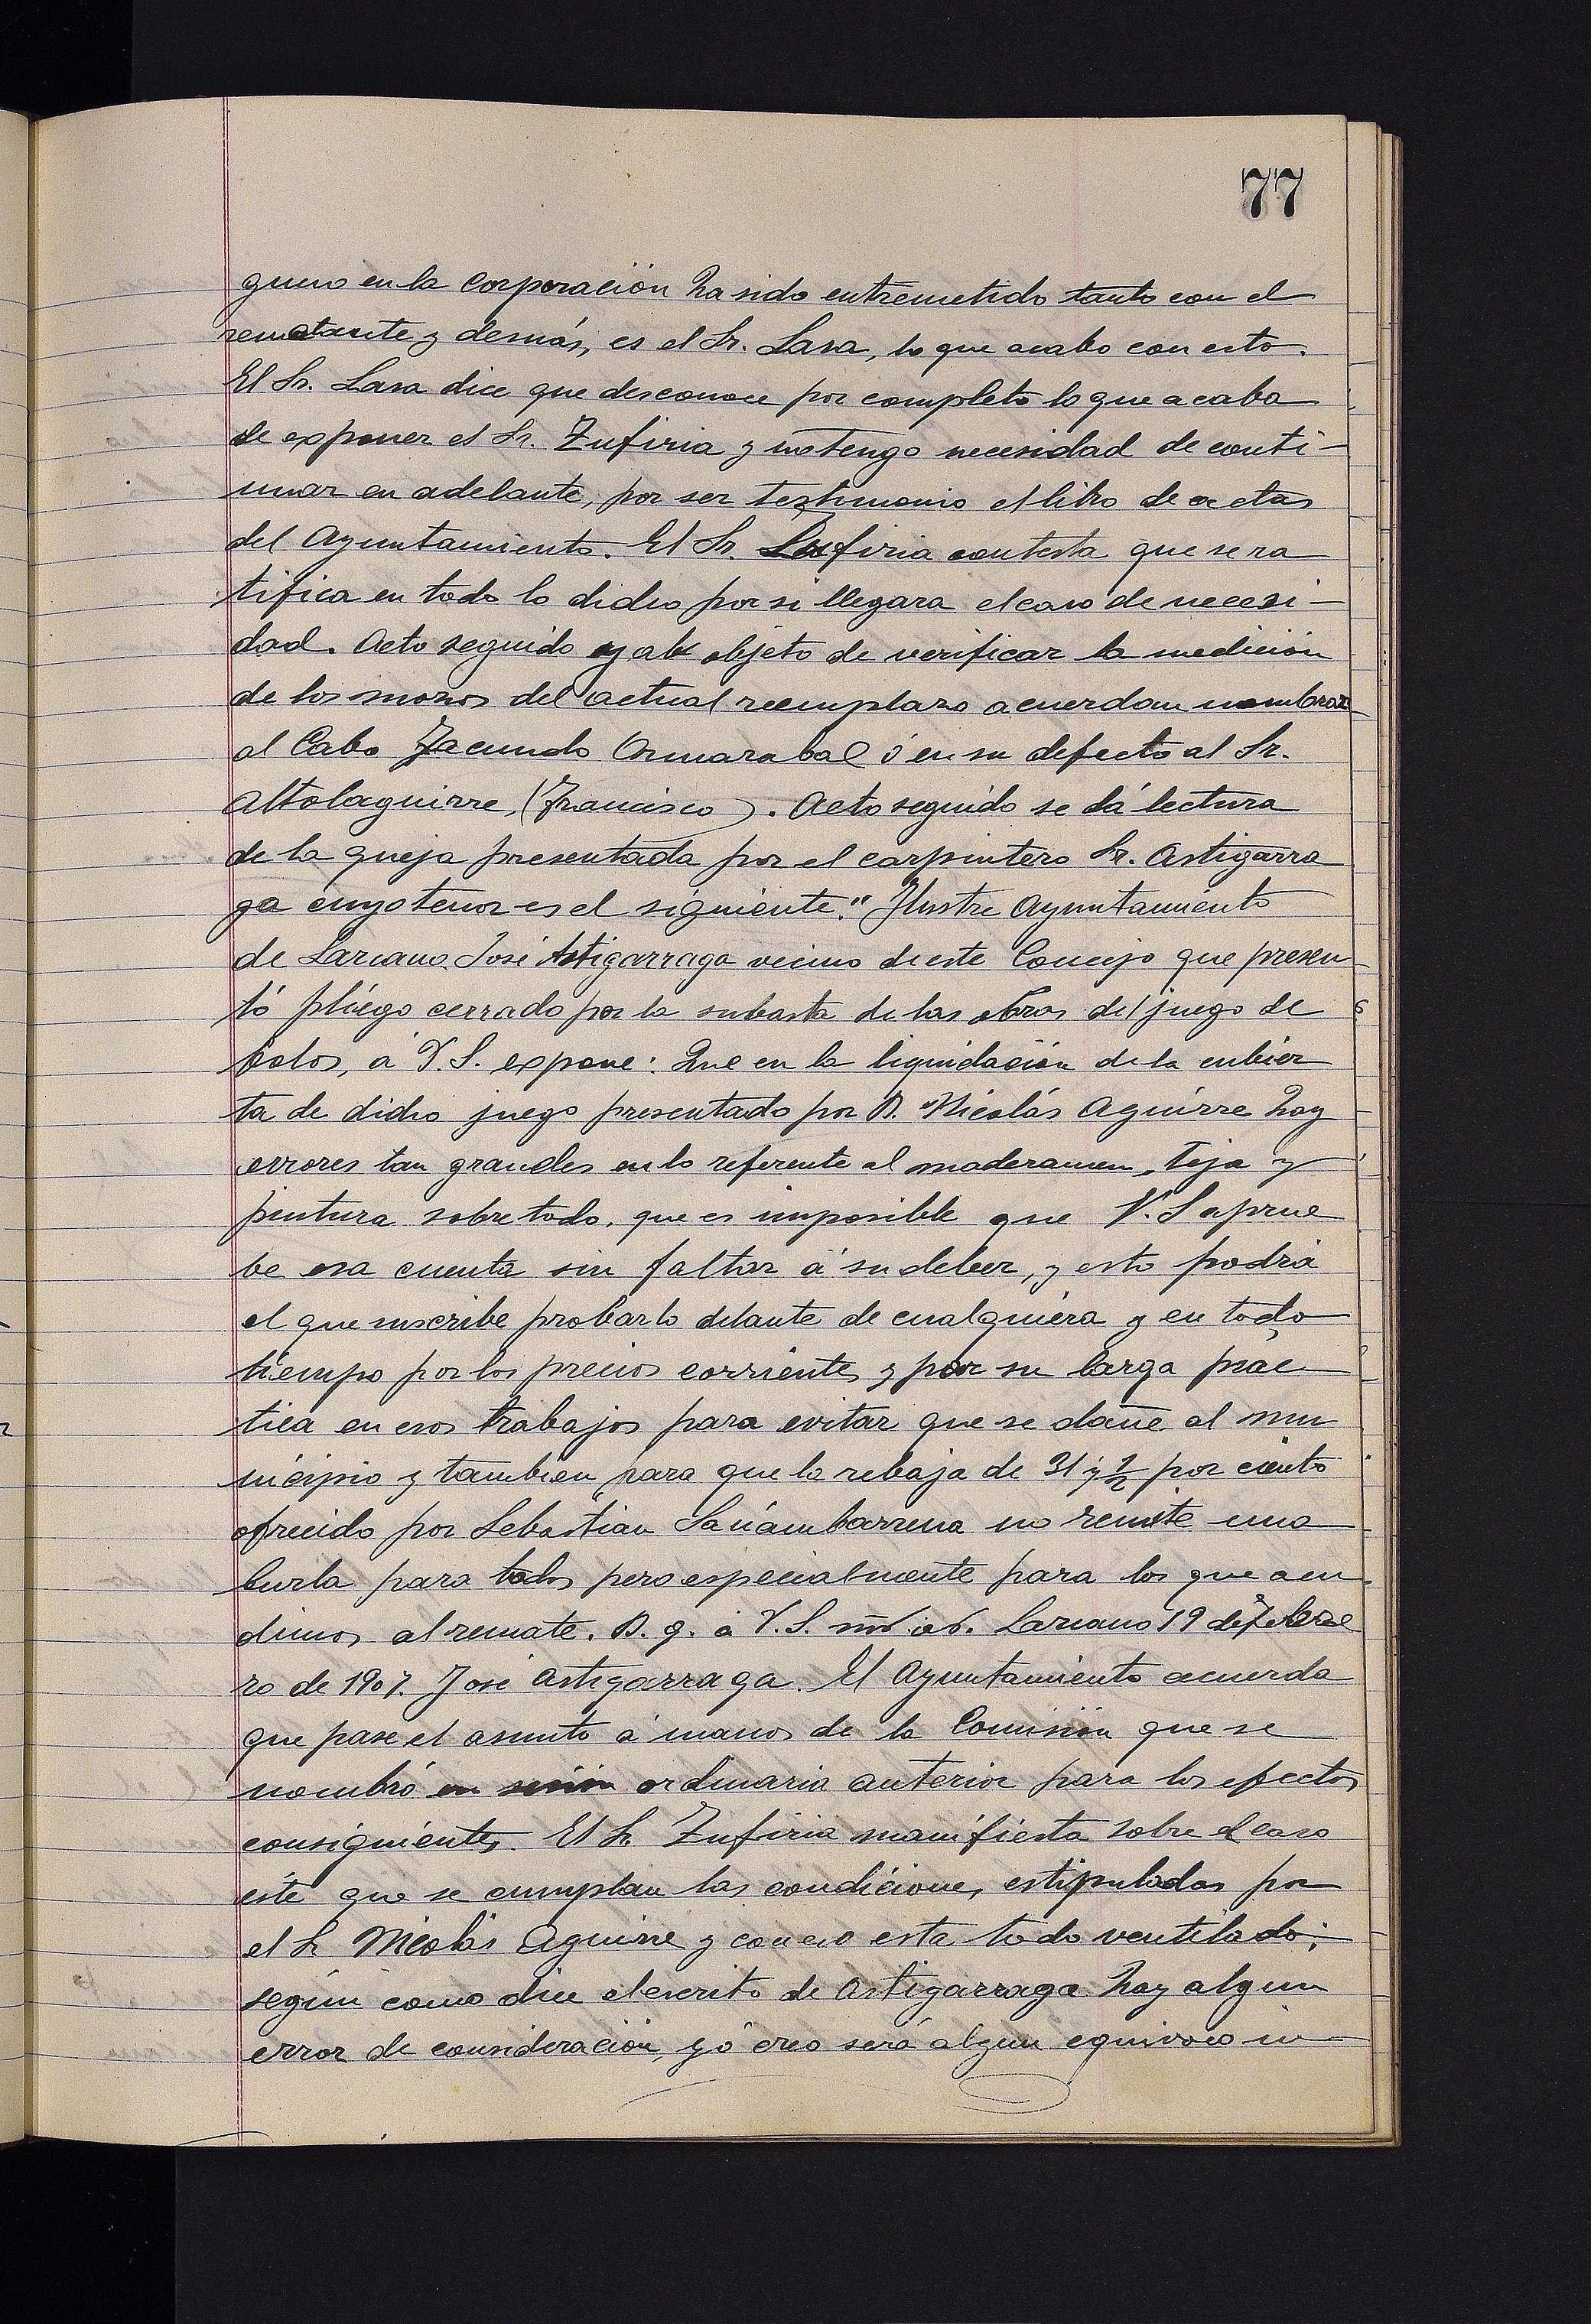 77
guno en la corporación ha sido entremetido tanto con el
rematante y demás, es el Sr. Lasa, lo que acabo con esto.
El Sr. Lasa dice que desconoce por completo lo que acaba
de exponer el Sr. Zufiria y no tengo necesidad de conti-
nuar en adelante, por ser testimonio el libro de actas
del Ayuntamiento. El Sr. Zufiria contesta que se ra
tifica en todo lo dicho por si llegara el caso de necesi-
dad. Acto seguido y al objeto de verificar la medición
de los mozos del actual reemplazo acuerdan nombrar
al Cabo Facundo Ormazabal ó en su defecto al Sr.
Altolaguirre, (Francisco). Acto seguido se dá lectura
de la queja presentada por el carpintero Sr. Astigarra
ga cuyo tenor es el siguiente." Ilustre Ayuntamiento
de Lazcano. José Astigarraga vecino de este Concejo que presen
tó pliego cerrado por la subasta de las obras del juego de
bolos, á V.S. expone: Que en la liquidación de la cubier
ta de dicho juego presentado por D. Nicolás Aguirre hay
errores tan grandes en lo referente al maderamen, teja y
pintura sobre todo, que es imposible que V.S aprue
be esa cuenta sin faltar á su deber, y esto podrá
el que suscribe probarlo delante de cualquiera y en todo
tiempo por los precios corrientes y por su larga prac
tica en esos trabajos para evitar que se dañe al mu
nicipio y tambien para que la rebaja de 31 y 1/2 por ciento
ofrecido por Sebastian Sanámbarrena no remite una
burla para todos pero especialmente para los que acu
dimos al remate. D. g. á V.S. Lazcano 19 de Febre
ro de 1907. José Astigarraga. El Ayuntamiento acuerda
que pase el asunto á manos de la Comisión que se
nombró en sesión ordinaria anterior para los efectos
consiguientes. El Sr Zufiria manifiesta sobre el caso
este que se cumplan las condiciones, estipuladas por
el Sr Nicolás Aguirre y con eso esta todo ventilado;
según como dice el escrito de Astigarraga hay algun
error de consideración, yó creo será algun equivoco in